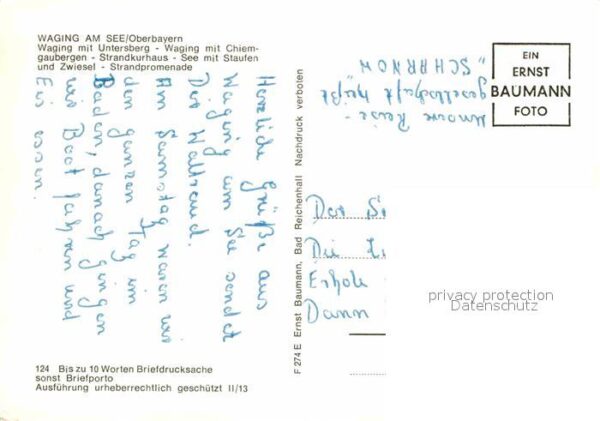 WAGING AM SEE/Oberbayern
Waging mit Untersberg - Waging mit Chiem-
gaubergen - Strandkurhaus - See mit Staufen
und Zwiesel - Strandpromenade
Herzliche Grüße aus
Waging am See sendet
Dir Waltraud.
Am Samstag waren wir
den ganzen Tag im
Baden, danach gingen
wir Boot fahren und
Eis essen.
124 Bis zu 10 Worten Briefdrucksache
sonst Briefporto
Ausführung urheberrechtlich geschützt II/13
F 274 E Ernst Baumann, Bad Reichenhall Nachdruck verboten
unsere Reise-
gesellschaft heißt
"SCHARNOW
EIN
ERNST
BAUMANN
FOTO
Die
Erhole
Dann
privacy protection
Datenschutz